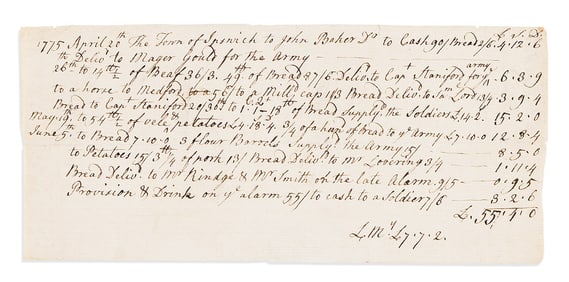 £ s. d.
1775 April 20th The Town of Ipswich to John Baker Dr to Cash 90/ Bread 2/6. 4.12.6
Deliv'd to Mager Gould for the Army
26th to 14 lb ½ of Beaf 36/3. 49 lb of Bread 87/6 Deliv'd to Capt Staniford for ye army 6.3.9
to a horse to Medford 56/ to a Mill cap 11/3 Bread Deliv'd to Lord 3.9.4
Bread to Capt Staniford 20/ of Bread Supply'd the Soldiers £14.2. 15.2.0
May 19. to 54 lb ½ of vele & potatoes £4.18.4. 3/4 of a hund of bread to ye Army £7.10.0 12.8.4
June 5th to Bread 7.10.0 3 flour Barrels Supply'd the Army 15/ 8.5.0
to Potatoes 15/ of pork 13/ Bread Deliv'd to Mr Lovering 3/4 1.11.4
Bread Deliv'd to Mr Kindge & Mr Smith on the late Alarm 9/5 0.9.5
Provision & Drink on ye alarm 55/ to cash to a Soldier 7/6 3.2.6
£. 55.4.0
£ My £7.7.2.